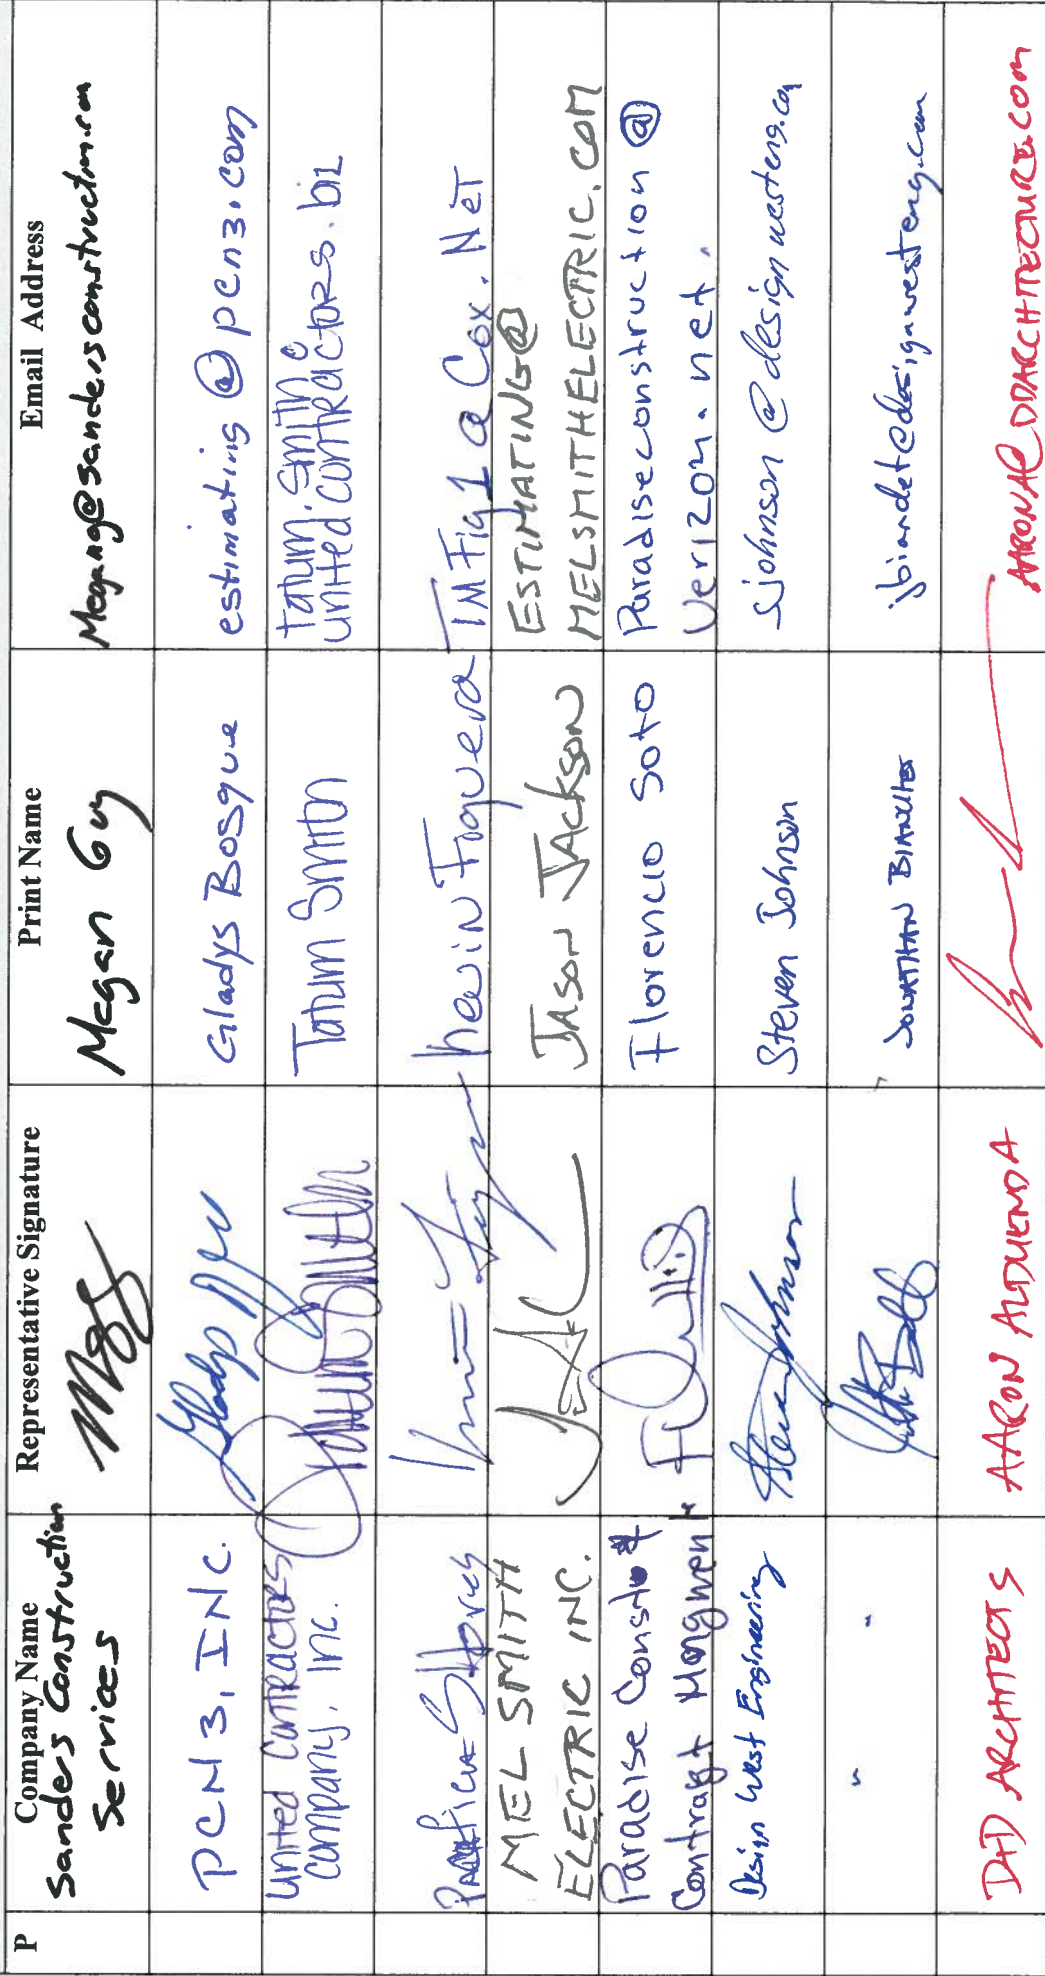 P Company Name Representative Signature Print Name Email Address
Sanders Construction
Services Megan Guy Megang@sandersconstruction.com
PCN3, INC. Gladys Bosque estimating @ pcn3.com
United Contractors
company, Inc. Tatum Smith tatum.smith@
unitedcontractors.biz
Kevin Figuera TMFig1@Cox.Net
MEL SMITH
ELECTRIC INC. JASON JACKSON ESTIMATING@
MELSMITHELECTRIC.COM
Paradise Constru #
Contract Mangmen t Florencio Soto Paradiseconstruction@
verizon.net.
Design West Engineering Steven Johnson sjohnson@designwesteng.com
" " JONATHAN
D+D ARCHITECTS AARON ALDUENDA AARONA@DDARCHITECTURE.COM